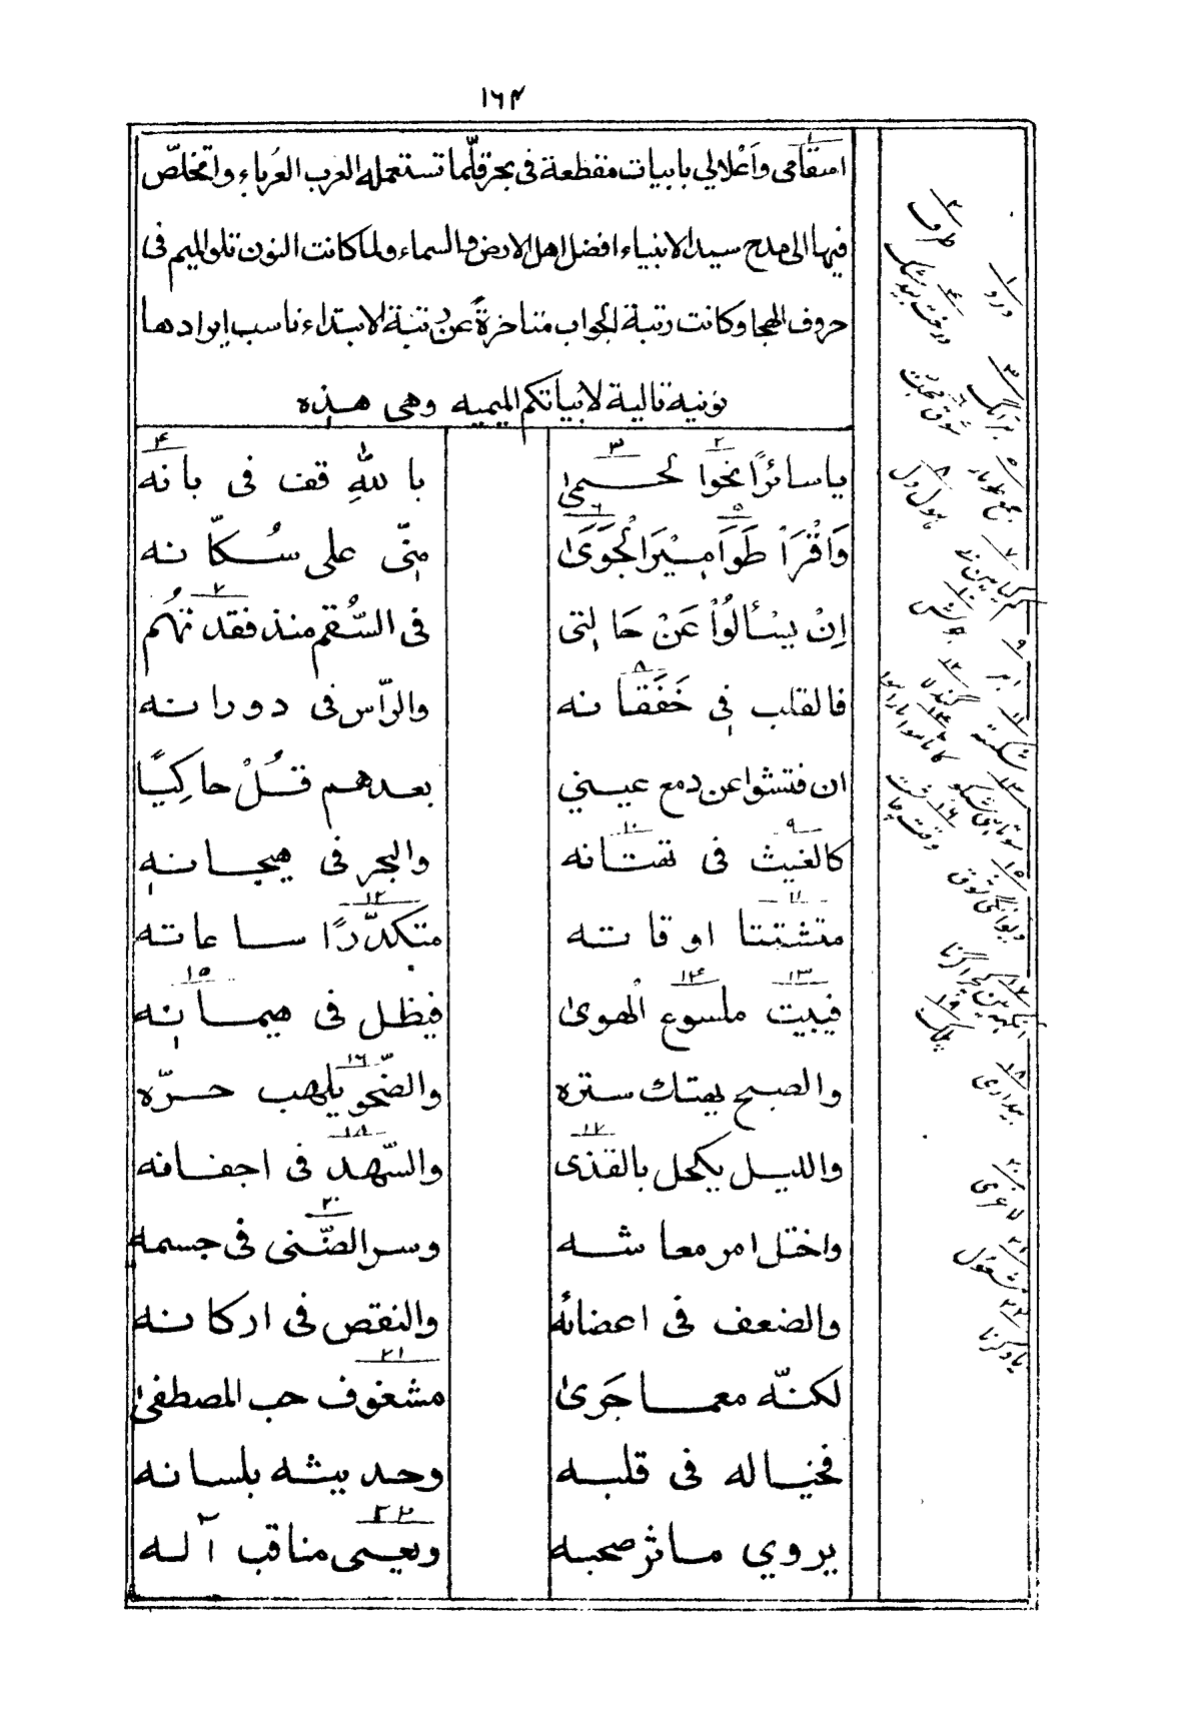 ١٦٤
اسقامى واَعْلالي بابيات مقطعة فى بحر قلّما تستعمله العرب العُرباء واتخلصّ
فيها الى مدح سيد الانبياء افضل اهل الارض والسماء ولما كانت النون تلو الميم فى
حروف الهجا وكانت رتبة الجواب متاخرةً عن رتبة الابتداء ناسب ايرادها
نونية تالية لابياتكم الميميه وهى هذه
ياسائرًا نحوا لحـمىٰ بالله قف فى بانه
وَاقْرَاْ طَوَامِيْرَ الْجَوَىٰ منّى على سُكّانه
اِنْ يسْألُوْا عَنْ حَالتى فى السُّقم منذ فقدتهُم
فالقلب فى خَفَقانه والرّأس فى دورانه
ان فتشوا عن دمع عيـني بعدهم قُلْ حاكِيًا
كالغيث فى تهتانه والبحر فى هيجانه
متشتتا اوقاته متكدّرًا ساعاته
فيبيت ملسوع الْهوىٰ فيظل فى هيمانه
والصبح يهتك ستره والضّحو يلهب حرّه
والليل يكحل بالقذى والسّهد فى اجفانه
واختل امر معاشه وسر الضّنى فى جسمه
والضعف فى اعضائه والنقص فى اركانه
لكنّه معما جَرىٰ مشغوف حب المصطفىٰ
فخياله فى قلبه وحديثه بلسانه
يروي ماثر صحبه ويعـى مناقب آله
١ درد
٢ طرف
٥ جمع طومار
٦ شوق محبت
٨ ہول دل
٩ ابر
١٠ بارش
١١ شكسته
١٨ بيدارى
٢٠ لاغرى
٢١ مشغول
٢٢ ياد كرنا